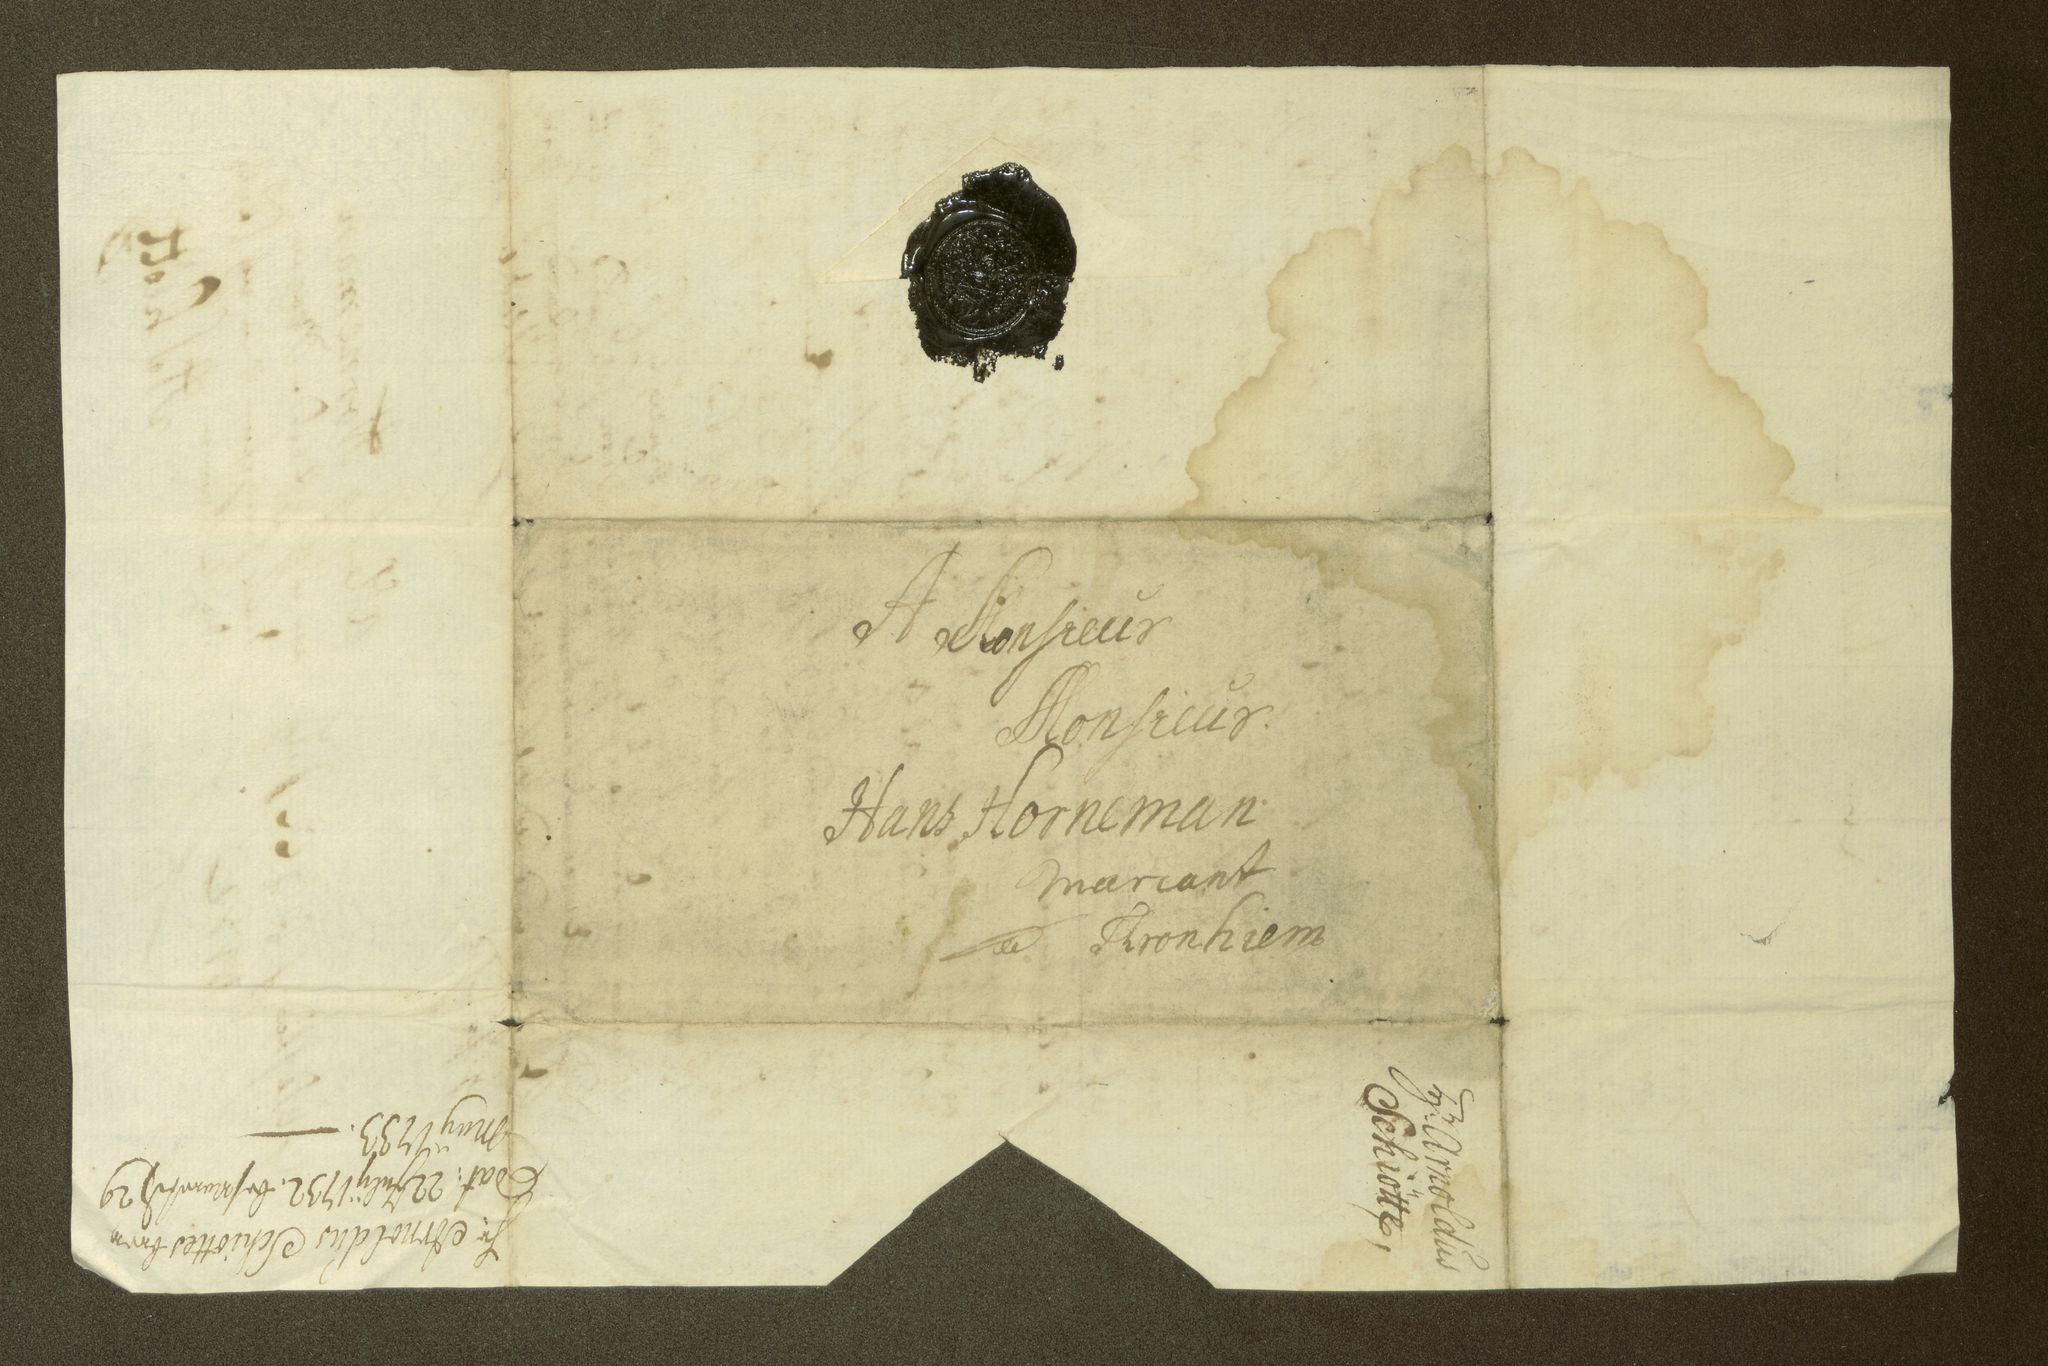 A Monsieur
Monsieur.
Hans Horneman
marcant
a Tronhiem
Hr: Arnoldus
Schiøtte,
Hr: Arnoldus Schiøttes brev
Dat: 22 July 1732. 29
May 1733.